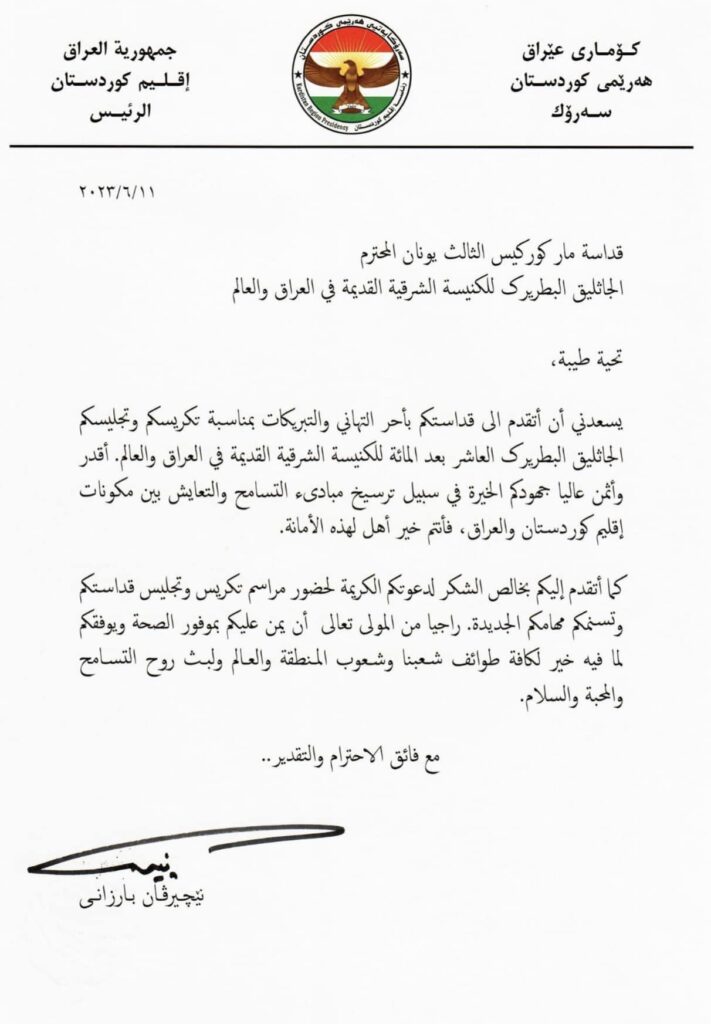 كۆماری عێراق
هەرێمی كوردستان
سەرۆك
سەرۆكایەتیی هەرێمی كوردستان
Kurdistan Region Presidency
رئاسة إقليم كوردستان
جمهورية العراق
إقليم كوردستان
الرئيس
٢٠٢٣/٦/١١
قداسة مار كوركيس الثالث يونان المحترم
الجاثليق البطريرك للكنيسة الشرقية القديمة في العراق والعالم
تحية طيبة،
يسعدني أن أتقدم الى قداستكم بأحر التهاني والتبريكات بمناسبة تكريسكم وتجليسكم
الجاثليق البطريرك العاشر بعد المائة للكنيسة الشرقية القديمة في العراق والعالم. أقدر
وأثمن عاليا جهودكم الخيرة في سبيل ترسيخ مبادىء التسامح والتعايش بين مكونات
إقليم كوردستان والعراق، فأنتم خير أهل لهذه الأمانة.
كما أتقدم إليكم بخالص الشكر لدعوتكم الكريمة لحضور مراسم تكريس وتجليس قداستكم
وتسنمكم مهامكم الجديدة. راجيا من المولى تعالى أن يمن عليكم بموفور الصحة ويوفقكم
لما فيه خير لكافة طوائف شعبنا وشعوب المنطقة والعالم ولبث روح التسامح
والمحبة والسلام.
مع فائق الاحترام والتقدير..
نێچیرڤان بارزانی